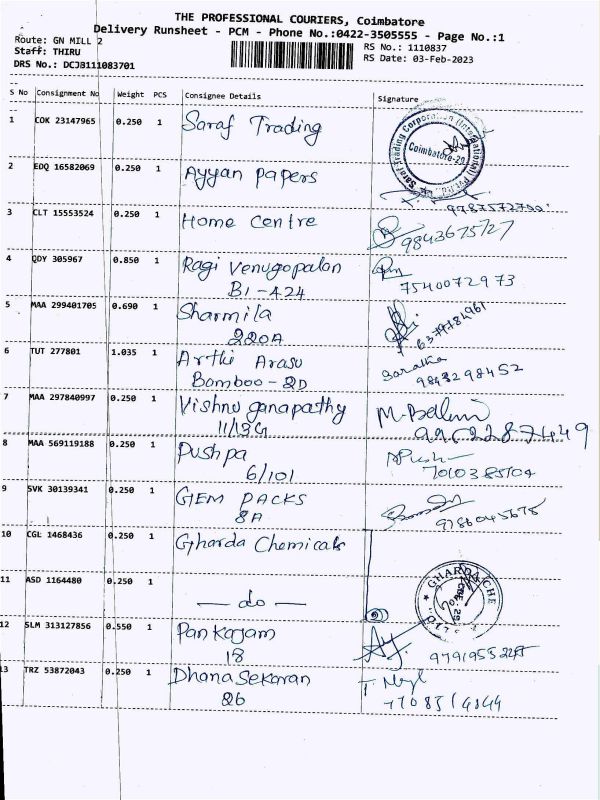 THE PROFESSIONAL COURIERS, Coimbatore
Delivery Runsheet - PCM - Phone No.:0422-3505555 - Page No.:1
Route: GN MILL 2
RS No.: 1110837
Staff: THIRU
RS Date: 03-Feb-2023
DRS No.: DCJB111083701
S No Consignment No Weight PCS Consignee Details Signature
1 COK 23147965 0.250 1 Saraf Trading
Saraf Trading Corporation (International) Pvt. Ltd.
Coimbatore-29
2 EDQ 16582069 0.250 1 Ayyan papers
3 CLT 15553524 0.250 1 Home Centre
9843675727
4 QDY 305967 0.850 1 Ragi Venugopalan
B1-424 7540072973
5 MAA 299401705 0.690 1 Sharmila
220A 6379784961
6 TUT 277801 1.035 1 Arthi Arasu
Bamboo-2D 9843298452
7 MAA 297840997 0.250 1 Vishnu ganapathy
11/13G
8 MAA 569119188 0.250 1 Pushpa
6/101
9 SVK 30139341 0.250 1 GEM PACKS
8A 9786045675
10 CGL 1468436 0.250 1 Gharda Chemicals
11 ASD 1164480 0.250 1 — do —
GHARDA CHE
12 SLM 313127856 0.550 1 Pankajam
18
13 TRZ 53872043 0.250 1 Dhana Sekaran
26